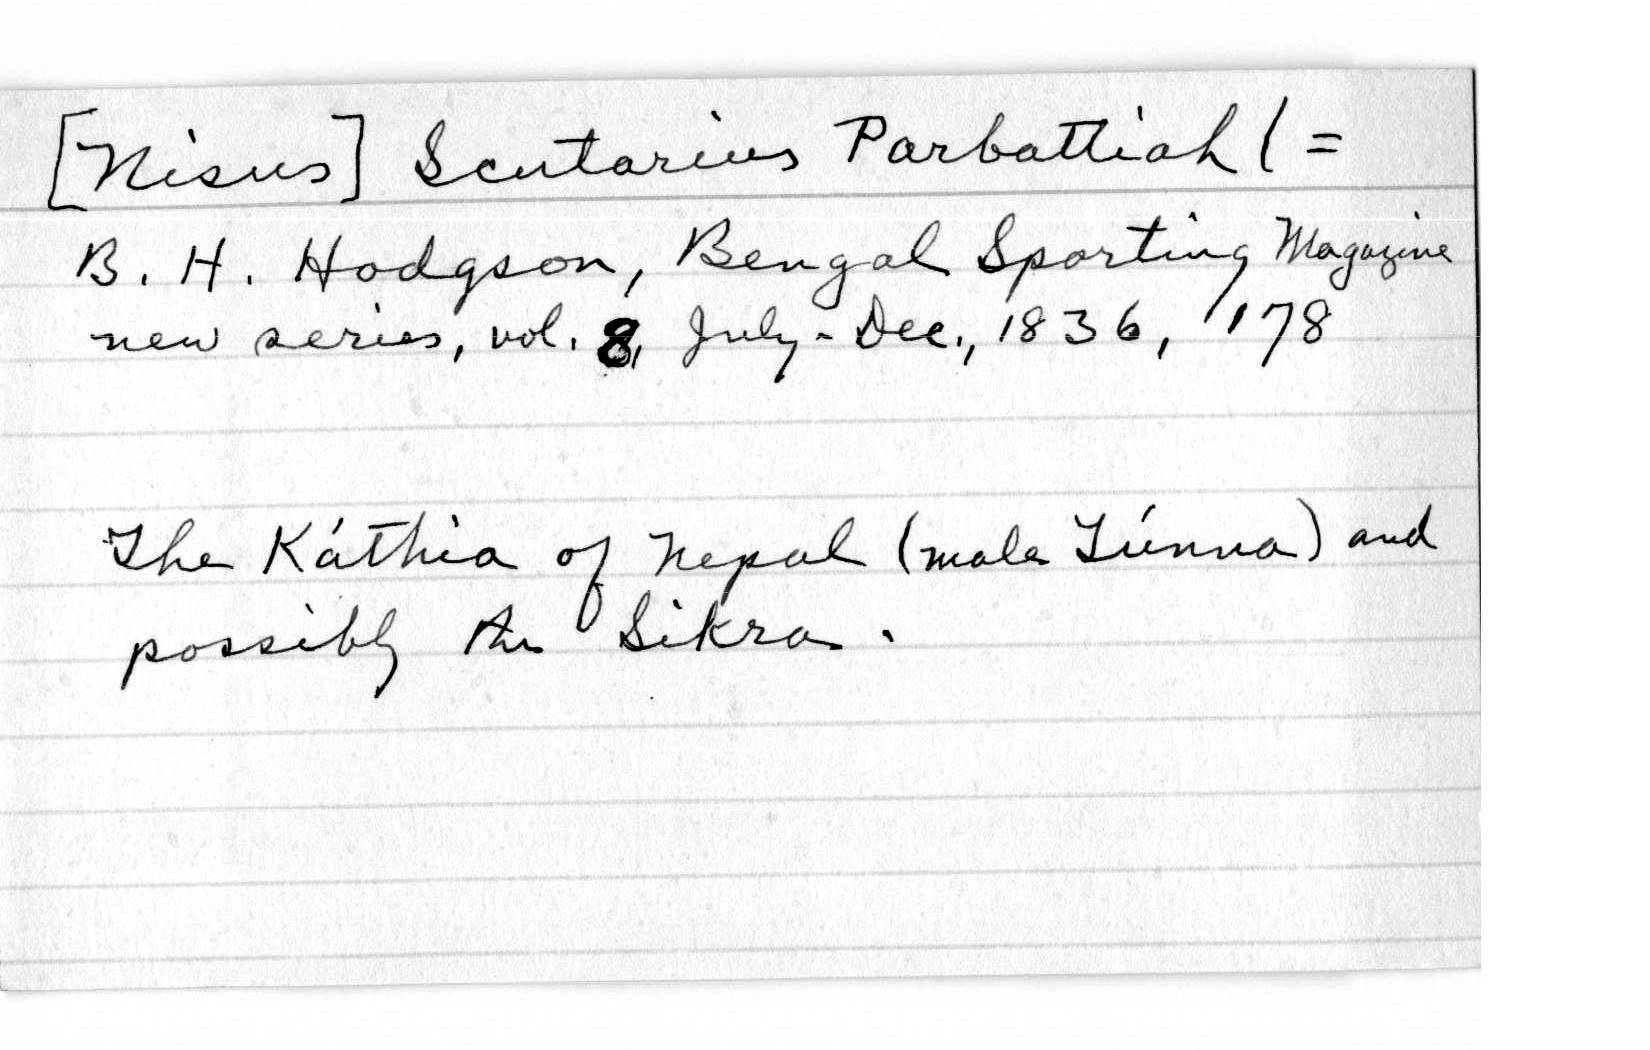 [Nisus] Scutarius Parbattiah (=
B. H. Hodgson, Bengal Sporting Magazine
new series, vol. 8, July-Dec., 1836, 178
The Káthia of Nepal (male Túnna) and
possibly the Sikra.